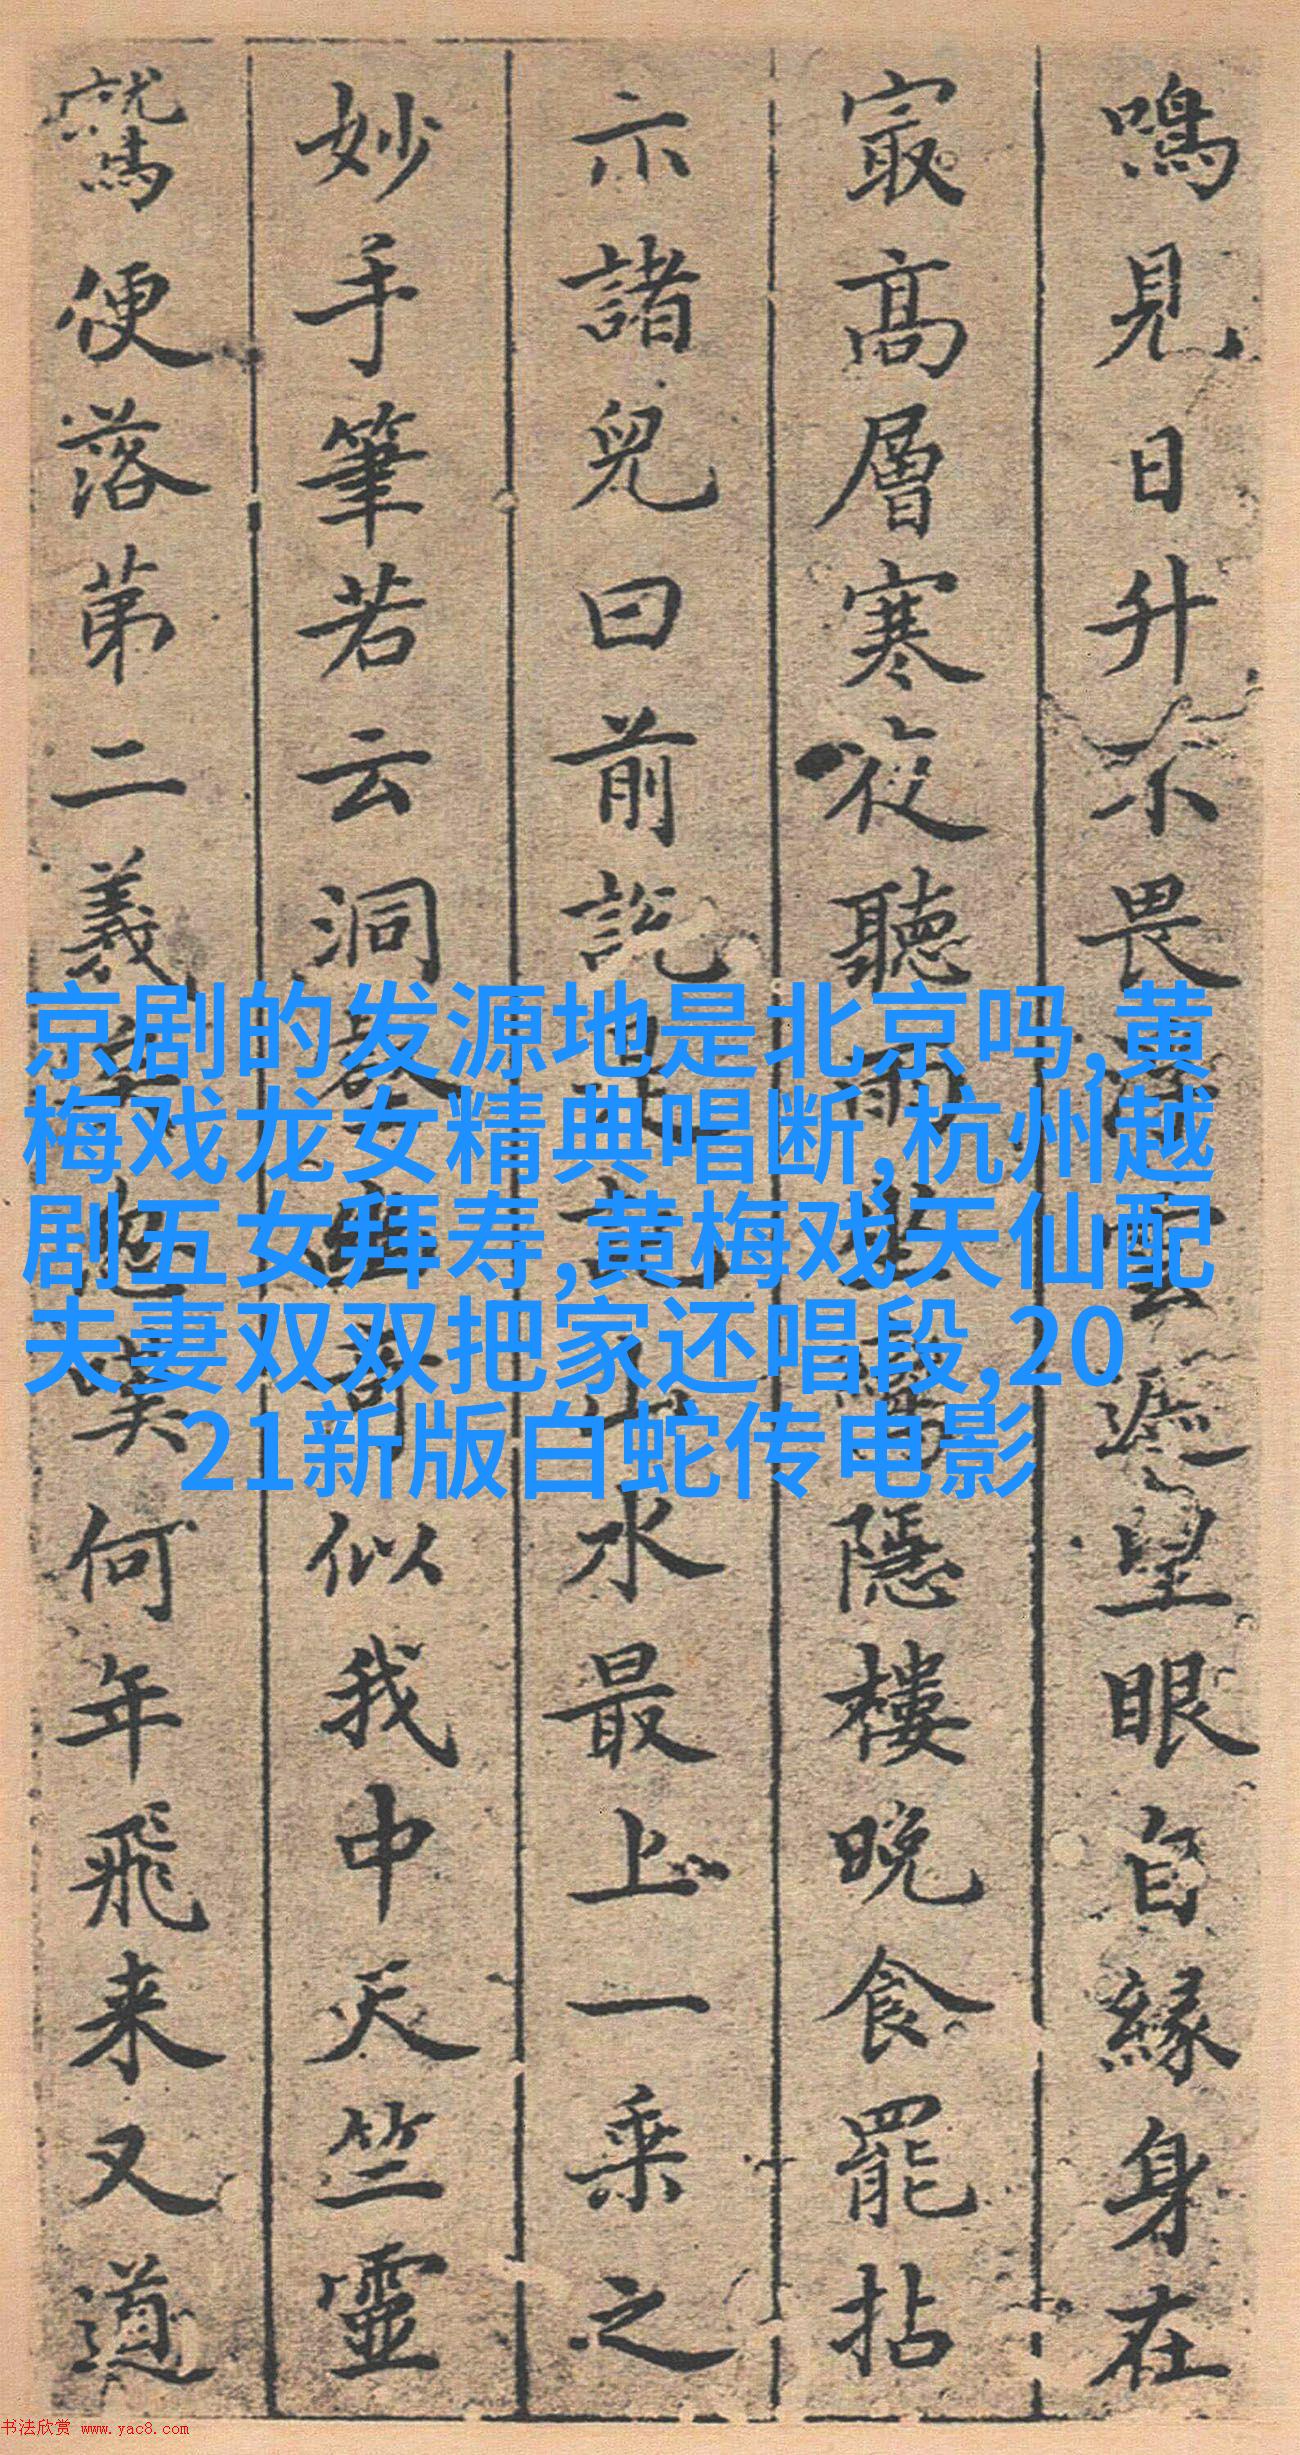 鳴見日升不畏浮雲遮望眼自緣身在
冣高層寒夜聽雨隱樓晚食罷拈
示諸兒曰前説山水最上一乘之
妙手筆若云洞奇似我中天竺靈
鷲便落苐二義何年飛来又道
京剧的发源地是北京吗,黄
梅戏龙女精典唱断,杭州越
剧五女拜寿,黄梅戏天仙配
夫妻双双把家还唱段,20
21新版白蛇传电影
书法欣赏 www.yac8.com